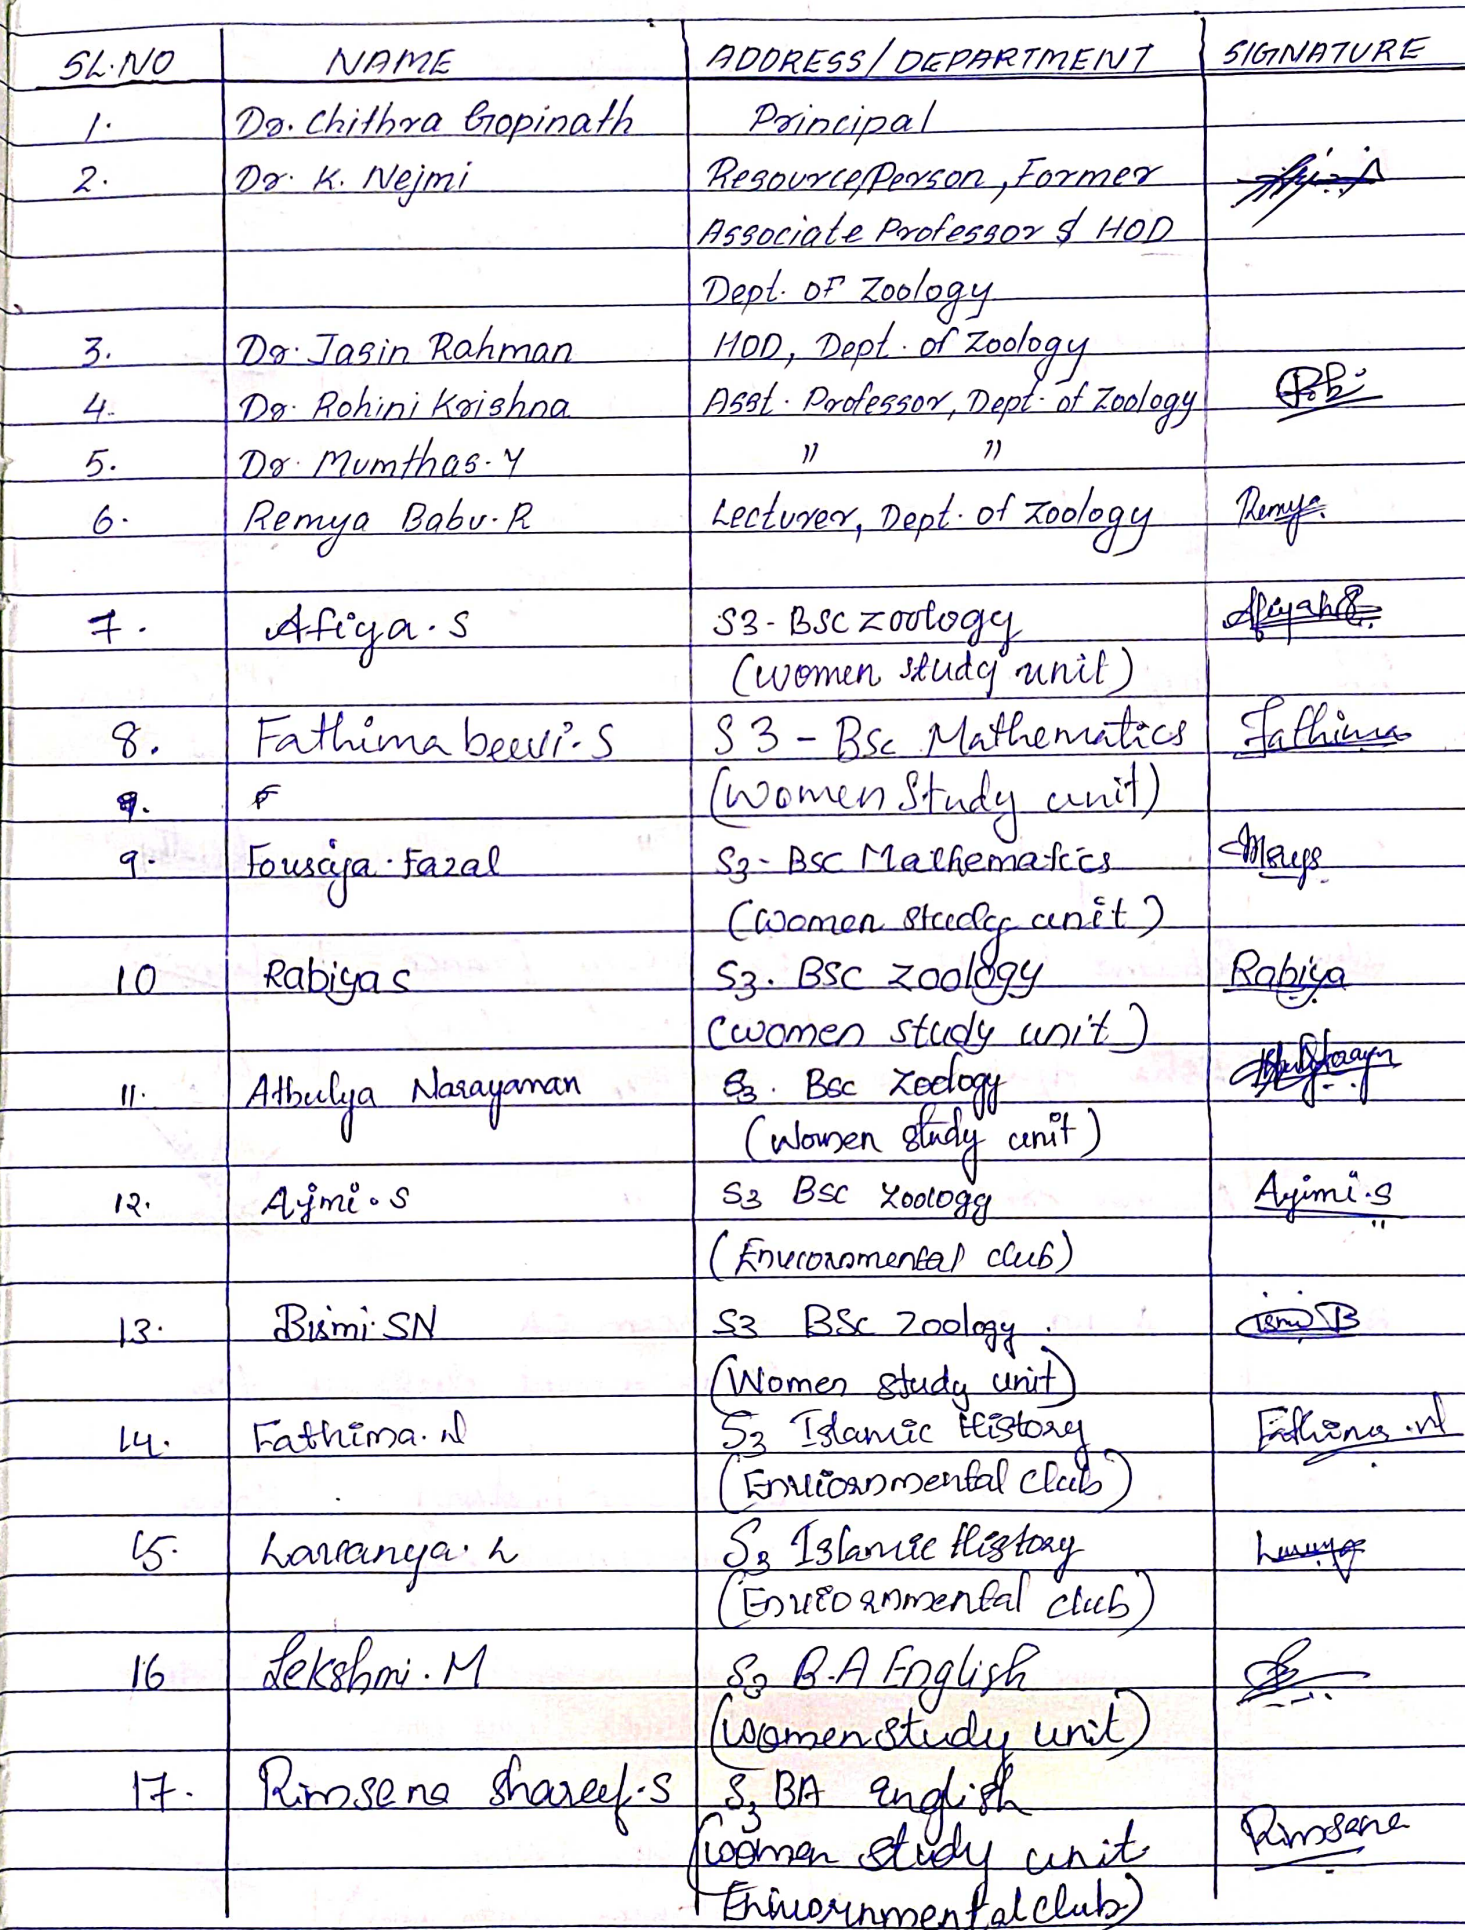 SL.NO NAME ADDRESS/DEPARTMENT SIGNATURE
1. Dr. Chithra Gopinath Principal
2. Dr. K. Nejmi Resource Person, Former
Associate Professor & HOD
Dept. of Zoology
3. Dr. Jasin Rahman HOD, Dept. of Zoology
4. Dr. Rohini Krishna Asst. Professor, Dept. of Zoology
5. Dr. Mumthas. Y " "
6. Remya Babu. R Lecturer, Dept. of Zoology Remya
7. Afiya. S S3 - BSC Zoology Afiyah S
(women study unit)
8. Fathima beevi. S S3 - BSc Mathematics Fathima
9. F (women Study unit)
9. Fousiya. Fazal S3 - BSC Mathematics
(women study unit)
10 Rabiya S S3. BSC Zoology Rabiya
(women study unit)
11. Athulya Narayanan S3. BSc Zoology
(Women study unit)
12. Ajmi. S S3 BSC Zoology Ajimi. S
(Environmental club)
13. Bismi SN S3 BSc Zoology.
(Women study unit)
14. Fathima. N S3 Islamic History Fathima. N
(Enviornmental Club)
15. Lavanya. L S3 Islamic History
(Enviornmental club)
16 Lekshmi. M S3 B.A English
(women study unit)
17. Rimsena Shareef. S S3 BA english
(women study unit Rimsena
Enivornmental club)